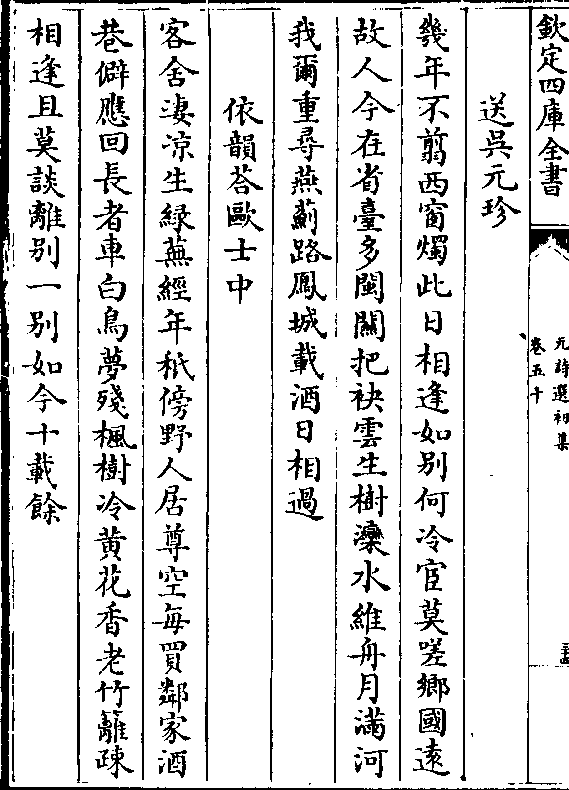 欽定四庫全書
元詩選初集
卷五十
送吳元珍
幾年不翦西窗燭此日相逢如别何冷宦莫嗟鄉國遠
故人今在省臺多閩關把袂雲生樹灤水維舟月滿河
我爾重尋燕薊路鳳城載酒日相過
依韻荅歐士中
客舍凄凉生緑蕪經年秖傍野人居尊空每買鄰家酒
巷僻應回長者車白鳥夢殘楓樹冷黄花香老竹籬疎
相逢且莫談離别一别如今十載餘